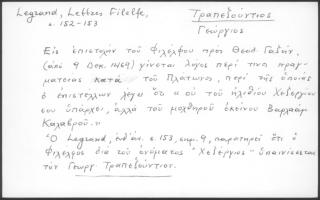 Legrand, Lettres Filelfe,
σ. 152-153
Τραπεζούντιος
Γεώργιος
Εἰς ἐπιστολὴν τοῦ Φιλέλφου πρὸς Θεοδ. Γαζῆν,
(ἀπὸ 9 Δεκ. 1469) γίνεται λόγος περί τινος πραγ-
ματείας κατὰ τοῦ Πλάτωνος, περὶ τῆς ὁποίας
ὁ ἐπιστέλλων λέγει ὅτι « οὐ τοῦ ἠλιθίου
σου ὑπάρχει, ἀλλὰ τοῦ μοχθηροῦ ἐκείνου
Καλαβροῦ.»
Ὁ Legrand, ἔνθ' ἀν. σ. 153, σημ. 9, παρατηρεῖ ὅτι ὁ
Φιλέλφος διὰ τοῦ ὀνόματος ὑπαινίσσεται
τὸν Γεώργ Τραπεζούντιον.